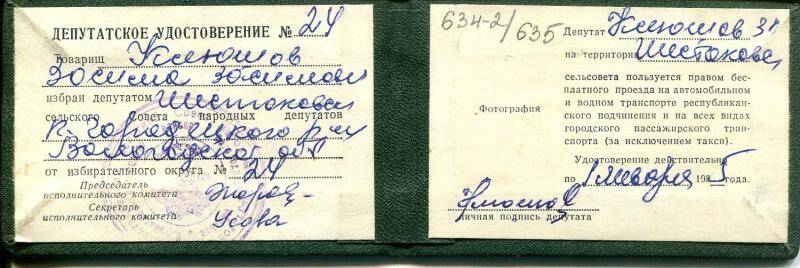 ДЕПУТАТСКОЕ УДОСТОВЕРЕНИЕ № 24
Товарищ Клюшов
Зосима Зосимов
избран депутатом Шестаковск
сельского Совета народных депутатов
К-Городецкого р-на
Вологодской обл
от избирательного округа № 24
Председатель
исполнительного комитета
Секретарь
исполнительного комитета Усова
634-2/635
Фотография
Депутат Клюшов ЗП
на территории Шестаковск
сельсовета пользуется правом бес-
платного проезда на автомобильном
и водном транспорте республикан-
ского подчинения и на всех видах
городского пассажирского транс-
порта (за исключением такси).
Удостоверение действительно
по 1 января 1985 года.
личная подпись депутата